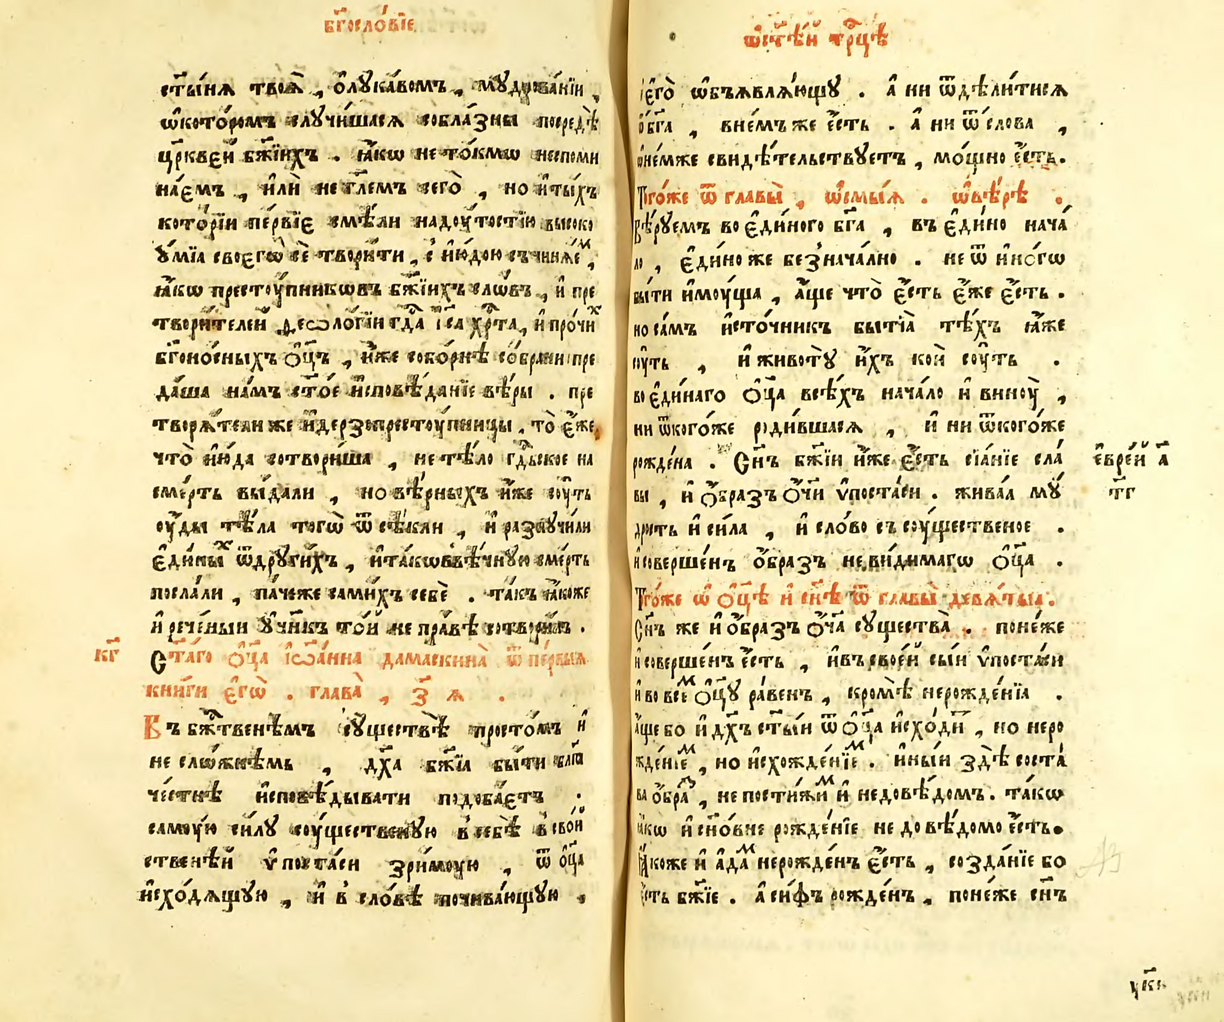 бг҃осло́вїе
ст҃ы́нѧ твоѧ̀, ѻ҆лука́вомъ, мꙋдрова́нїи,
ѡ҆кото́ромъ случи́шасѧ собла́зны посредѣ̀
цр҃кве́й бж҃їихъ. ꙗ҆́кѡ не то́кмѡ неспоми
на́емъ, и҆лѝ не гл҃емъ сего̀, но и҆ ты́хъ
кото́рїи пе́рвїе смѣ́ли надꙋ́тостїю высоко
ꙋ҆мїѧ своегѡ̀ сѐ твори́ти, с҆ ї҆ю́дою съчинѧ́еⷨ,
ꙗ҆́кѡ престꙋ́пникѡвъ бж҃їихъ сло́въ, и҆ пре
твори́телей ѳеѡло́гїи гд҇а і҆с҃а хр҇та, и҆ про́чиⷯ
бг҃оно́сныхъ ѻ҆ц҃ъ, и҆́же собо́рнѣ со́брани пре
да́ша на́мъ ст҃о́е и҆сповѣ́данїе вѣ́ры. пре
творѧ́тели же и҆ дерзопрестꙋ́пницы. то̀ є҆́же,
что̀ ї҆ю́да сотвори́ша, не тѣ́ло гд҇ьское на
сме́рть вы́дали, но вѣ́рныхъ и҆́же сꙋ́ть
ꙋ҆́ды тѣ́ла тогѡ̀ ѿсѣ́кли, и҆ разлꙋчи́ли
є҆ди́ныⷯ ѿ дрꙋги́хъ, и҆ та́кѡ в вѣ́чнꙋю сме́рть
посла́ли, па́чеже сами́хъ себѐ. та́къ ꙗ҆́коже
и҆ рече́нныи ꙋ҆чн҃къ то́й не пра́вѣ сотвори́лъ.
кг҃
Ст҃а́го ѻ҆ц҃а і҆ѡа́нна дамаскина̀ ѿ пе́рвыѧ
кни́ги є҆гѡ̀. глава̀, з҃ ꙗ.
Въ бж҇твенѣмъ сꙋществѣ̀ просто́мъ и҆
не сло́жнѣмь, дх҃а бж҃їѧ бы́ти благо
че́стнѣ и҆сповѣ́дывати подоба́етъ.
самꙋ́ю си́лꙋ сꙋ́щественꙋю в себѣ̀ в сво́й
ственѣ́й ѵ҆поста́си зри́мꙋю, ѿ ѻ҆ц҃а
и҆сходѧ́щꙋю, и҆ в сло́вѣ почива́ющꙋю,
ѡ҆ ст҃ѣ́й тр҇цѣ
є҆го̀ ѡ҆бъѧвлѧ́ющꙋ. а҆ ни ѿдѣли́тисѧ
ѿ бг҃а, в не́мъ же є҆́сть. а҆ ни ѿ сло́ва,
ѡ҆ не́мже свидѣ́тельствꙋетъ, мо́щно є҆́сть.
Тогѡ́же ѿ главы̀, ѡ҆смы́ѧ. ѡ҆ вѣ́рѣ.
Вѣ́рꙋемъ во є҆ди́ного бг҃а, въ є҆ди́но нача́
ло, є҆ди́но же безнача́лно. не ѿ и҆но́гѡ
бы́ти и҆мꙋ́ща, а҆́ще что̀ є҆́сть є҆́же є҆́сть.
но са́мъ и҆сто́чникъ бытїѧ̀ тѣ́хъ ꙗ҆́же
сꙋ́ть, и҆ животꙋ̀ и҆́хъ ко́й сꙋ́ть.
во є҆ди́наго ѻ҆ц҃а всѣ́хъ нача́ло и҆ винꙋ̀,
ни ѿкого́же роди́вшасѧ, и҆ ни ѿкого́же
рожде́на. Сн҃ъ бж҃їи и҆́же є҆́сть сїѧ́нїе сла́
вы, и҆ ѻ҆́бразъ ѻ҆́ч҃и ѵ҆поста́си. жива́ѧ мꙋ́
є҆вре́й а҃
ст҃г
дрость и҆ си́ла, и҆ сло́во съсꙋ́щественое.
и҆ соверше́нъ ѻ҆́бразъ неви́димагѡ ѻ҆ц҃а.
Тогѡ́же ѡ҆ ѻ҆ц҃ѣ и҆ сн҃ѣ ѿ главы̀ девѧ́тыѧ.
Сн҃ъ же и҆ ѻ҆́бразъ ѻ҆́ч҃а сꙋщества̀. поне́же
и҆ соверше́нъ є҆́сть, и҆ въ свое́й сы́и ѵ҆поста́си
и҆ во все́мⷨ ѻ҆ц҃ꙋ ра́венъ, кро́мѣ нерожде́нїѧ.
а҆́ще бо и҆ дх҃ъ ст҃ы́и ѿ ѻ҆ц҃а и҆схо́ди, но неро
жде́нїеⷨ, но и҆схожде́нїеⷨ. и҆ны́и здѣ̀ соста́
ва ѻ҆́браⷥ, не пости́жиⷨ и҆ недовѣ́домъ. та́кѡ
ꙗ҆́кѡ и҆ сн҃о́вне рожде́нїе не до вѣ́домо є҆́сть.
Ꙗ҆́коже и҆ а҆да́ⷨ нерожде́нъ є҆́сть, созда́нїе бо
є҆́сть бж҃їе. а҆ си́ѳъ рожде́нъ, поне́же сн҃ъ